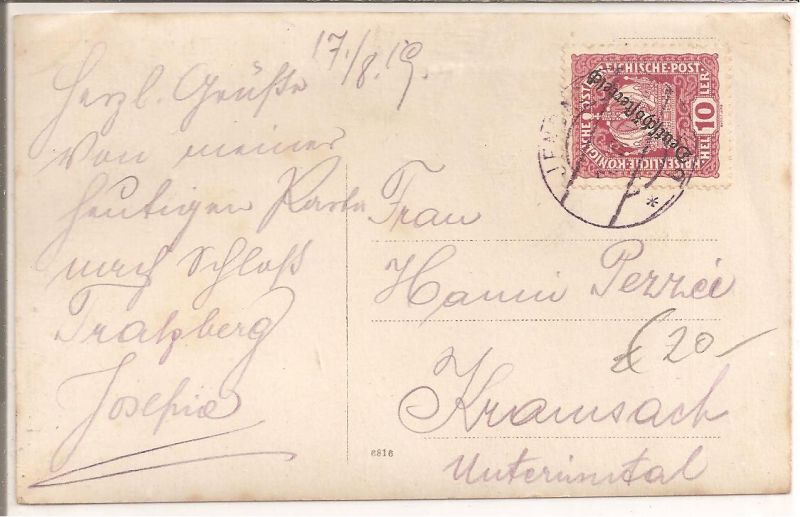 17./8.19.
Herzl. Grüße
von meiner
heutigen
nach Schloß
Tratzberg
Josefine
KAISERLICHE KÖNIGLICHE ÖSTERREICHISCHE POST
HELLER 10
Deutschösterreich
JENBACH
Frau
Hanni
Kramsach
Unterinntal
€ 20-
6816